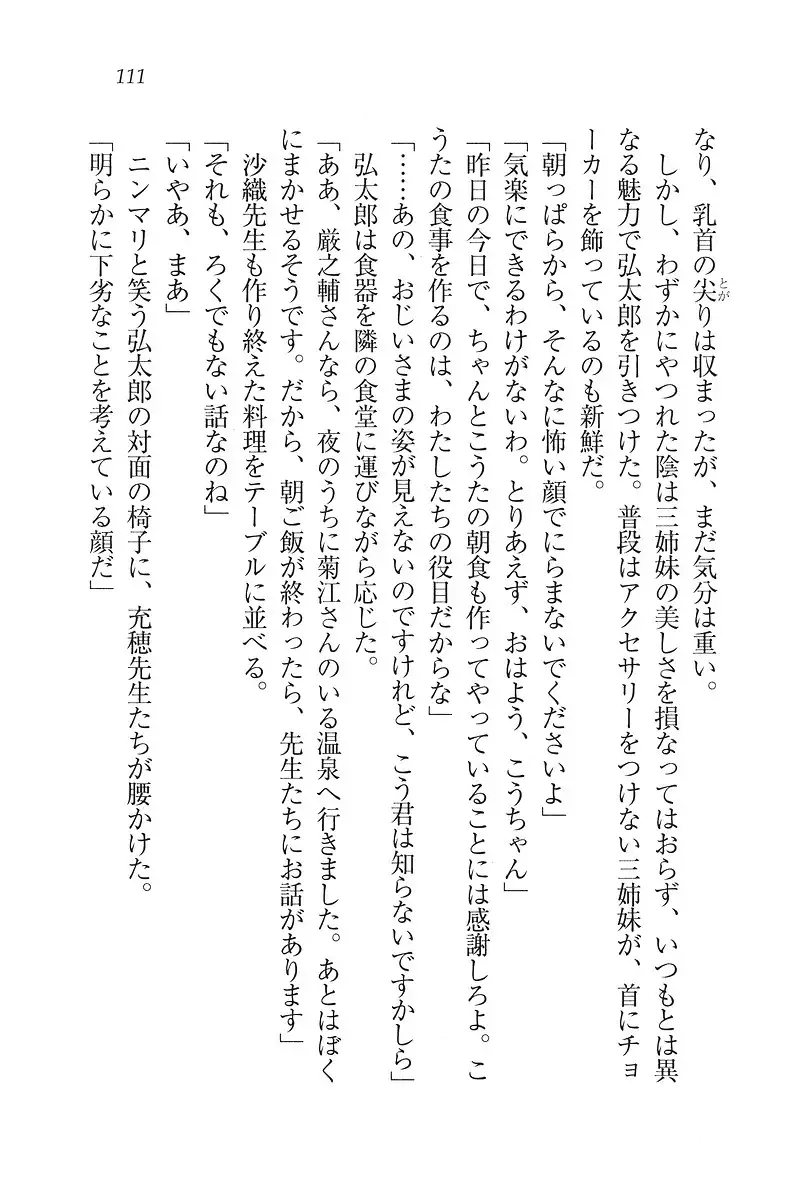 111
なり、乳首の尖りは収まったが、まだ気分は重い。
とが
しかし、わずかにやつれた陰は三姉妹の美しさを損なってはおらず、いつもとは異
なる魅力で弘太郎を引きつけた。普段はアクセサリーをつけない三姉妹が、首にチョ
ーカーを飾っているのも新鮮だ。
「朝っぱらから、そんなに怖い顔でにらまないでくださいよ」
「気楽にできるわけがないわ。とりあえず、おはよう、こうちゃん」
「昨日の今日で、ちゃんとこうたの朝食も作ってやっていることには感謝しろよ。こ
うたの食事を作るのは、わたしたちの役目だからな」
「……あの、おじいさまの姿が見えないのですけれど、こう君は知らないですかしら」
弘太郎は食器を隣の食堂に運びながら応じた。
「ああ、厳之輔さんなら、夜のうちに菊江さんのいる温泉へ行きました。あとはぼく
にまかせるそうです。だから、朝ご飯が終わったら、先生たちにお話があります」
沙織先生も作り終えた料理をテーブルに並べる。
「それも、ろくでもない話なのね」
「いやあ、まあ」
ニンマリと笑う弘太郎の対面の椅子に、充穂先生たちが腰かけた。
「明らかに下劣なことを考えている顔だ」